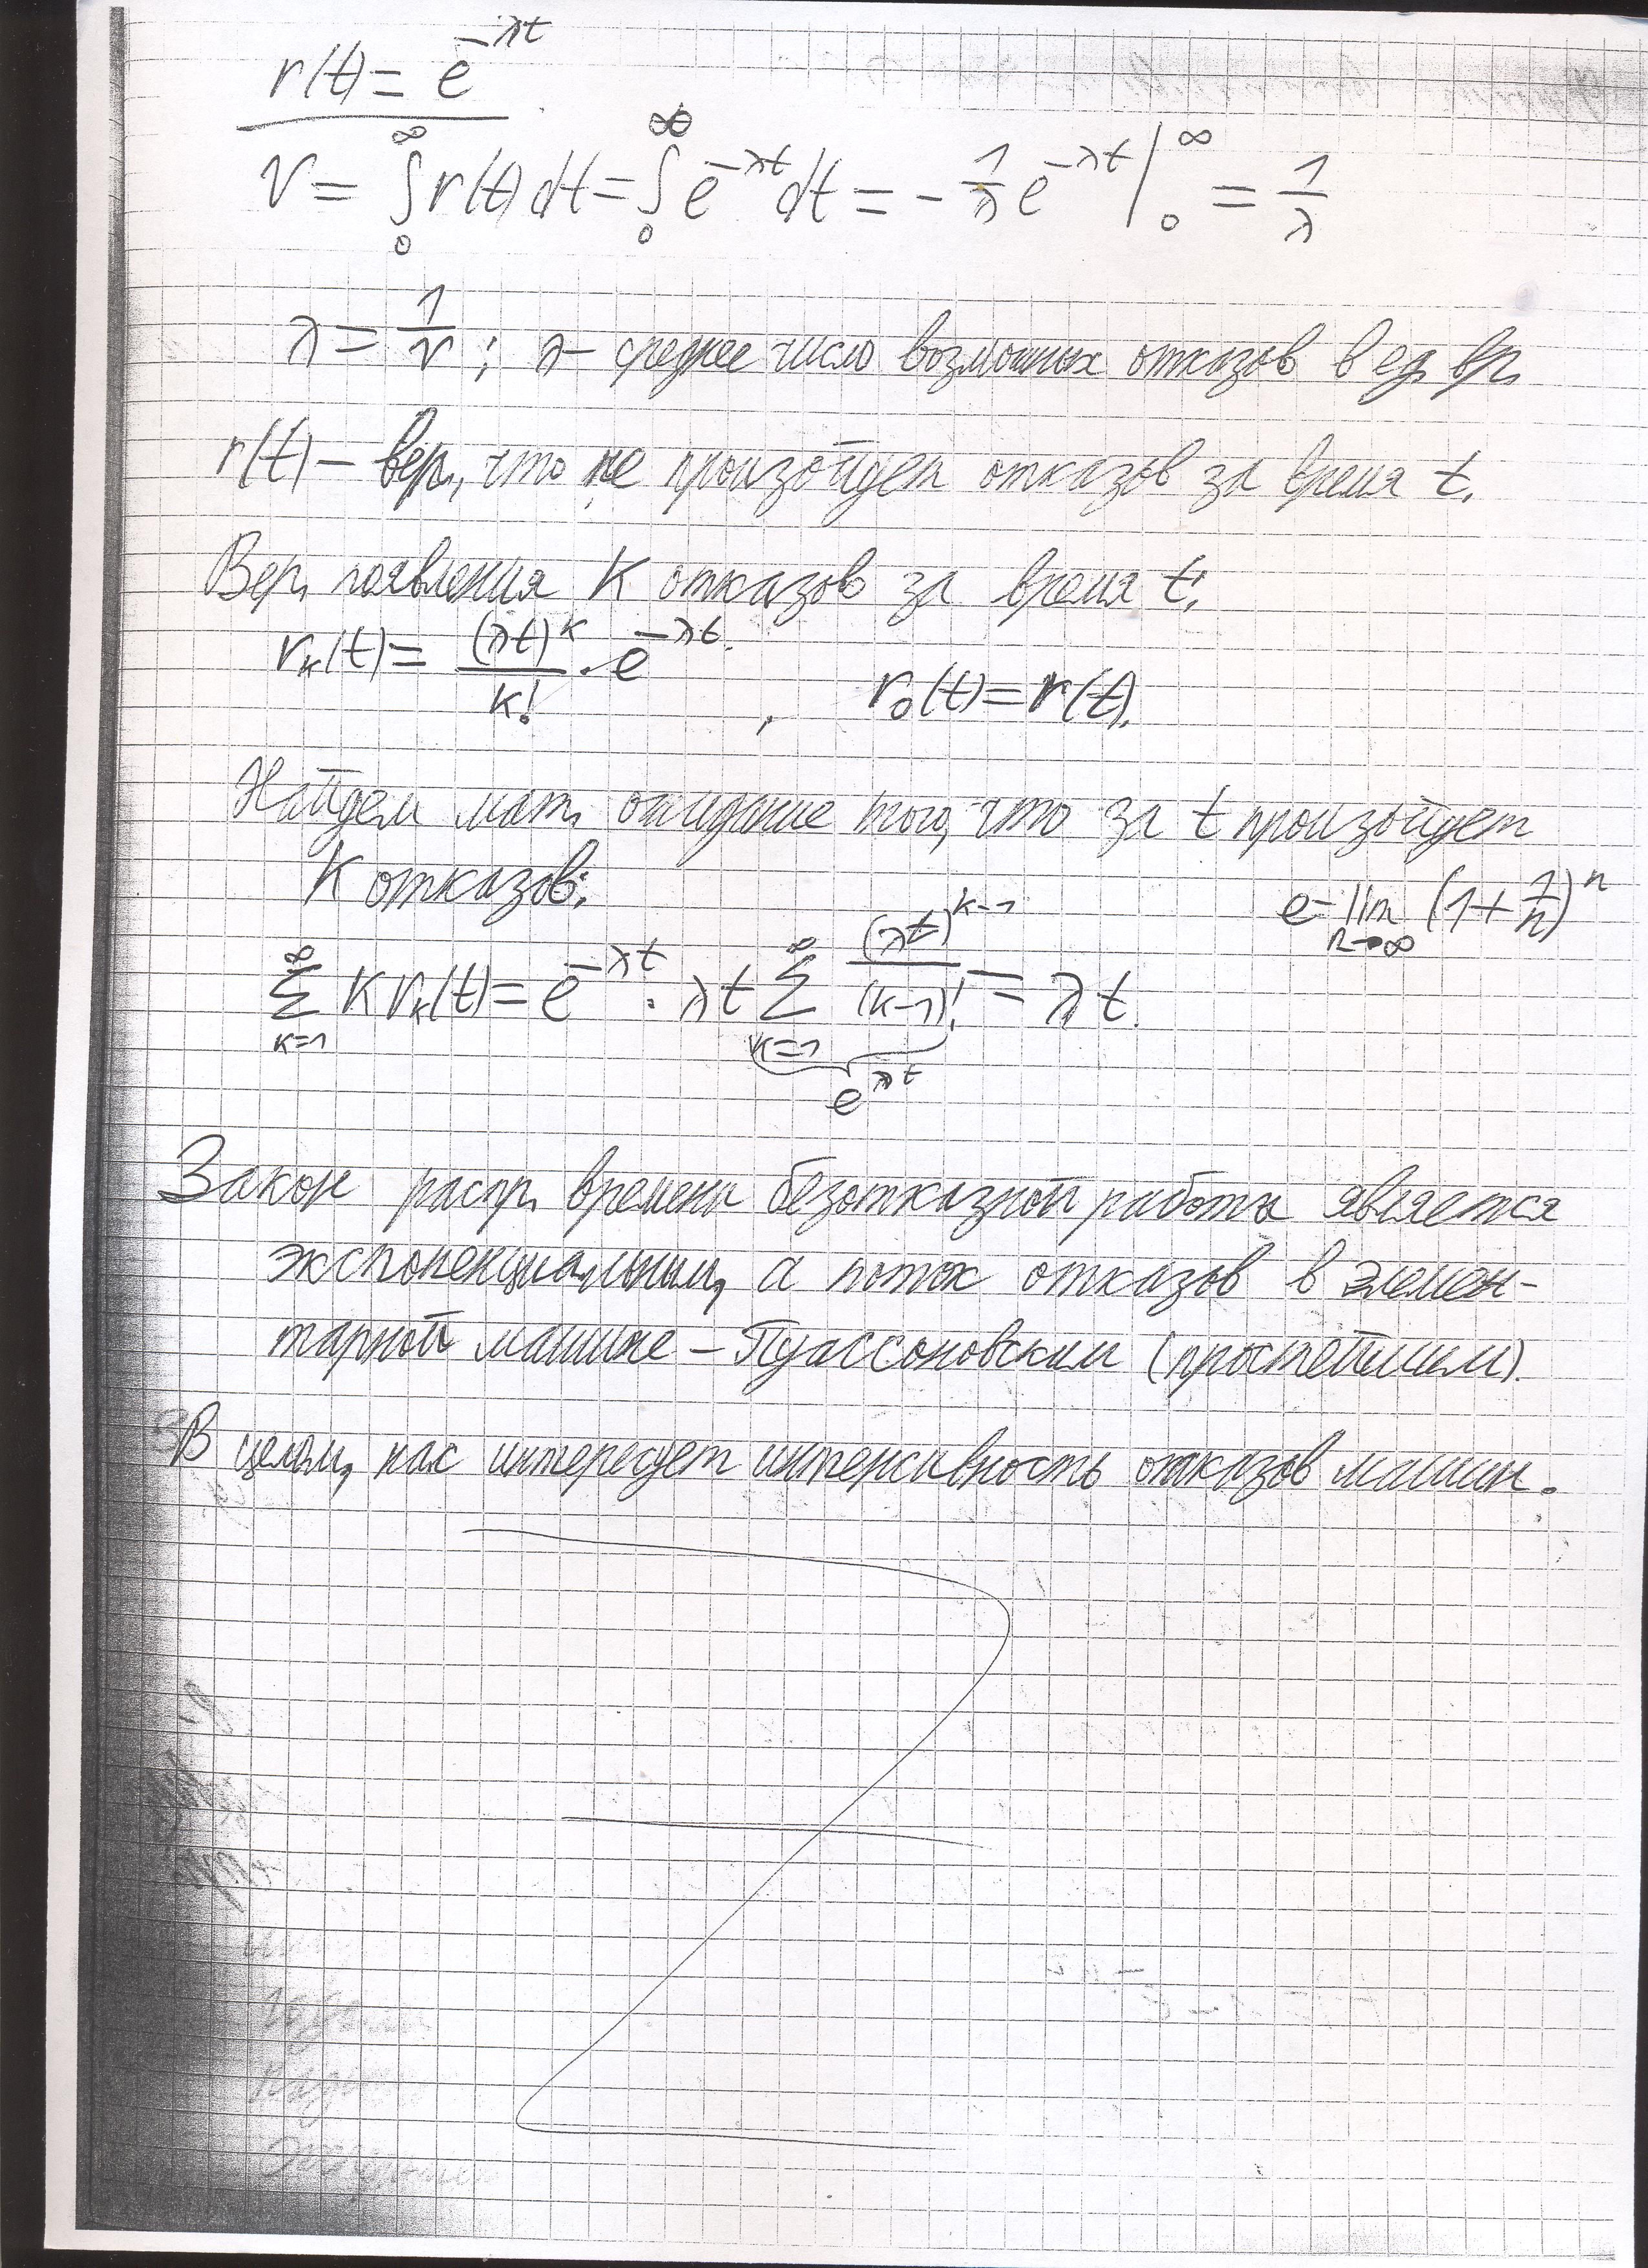 r(t) = e^{-λt}
ν = ∫_0^∞ r(t) dt = ∫_0^∞ e^{-λt} dt = - 1/λ e^{-λt} |_0^∞ = 1/λ
λ = 1/ν ; λ – среднее число возможных отказов в ед. вр.
r(t) – вер., что не произойдет отказов за время t.
Вер. появления K отказов за время t:
r_k(t) = (λt)^k / k! · e^{-λt}, r_0(t) = r(t).
Найдем мат. ожидание того, что за t произойдет
K отказов:
e = lim_{n→∞} (1 + 1/n)^n
∑_{k=1}^∞ K r_k(t) = e^{-λt} · λt ∑_{k=1}^∞ (λt)^{k-1} / (k-1)! = λt.
e^{λt}
Закон распр. времени безотказной работы является
экспоненциальным, а поток отказов в элемен-
тарной машине – Пуассоновским (простейшим).
В целом, нас интересует интенсивность отказов машин.